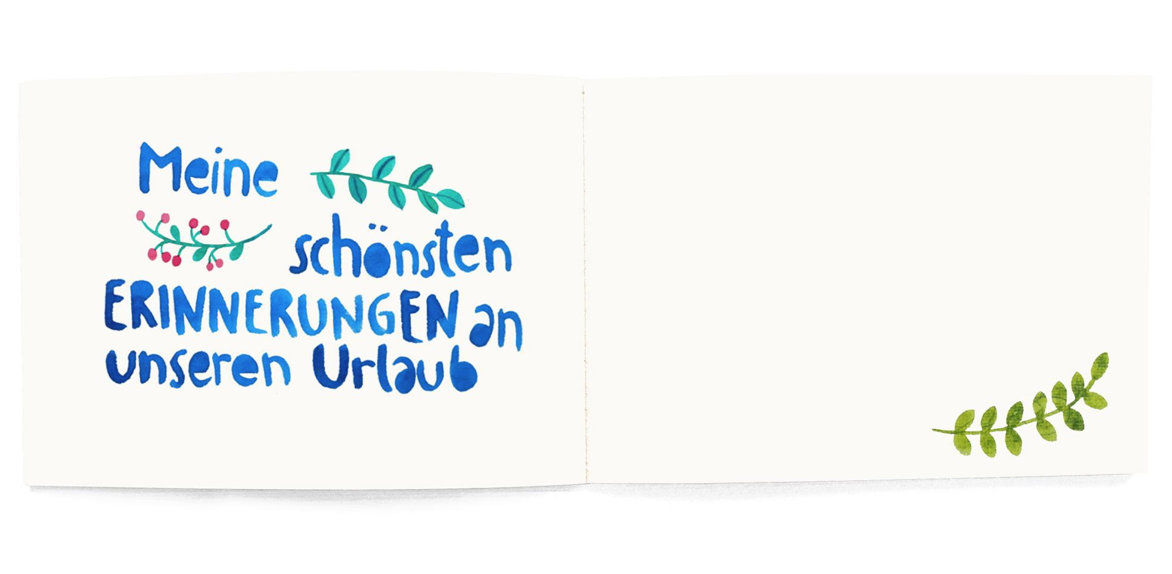 Meine
schönsten
ERINNERUNGEN an
unseren Urlaub